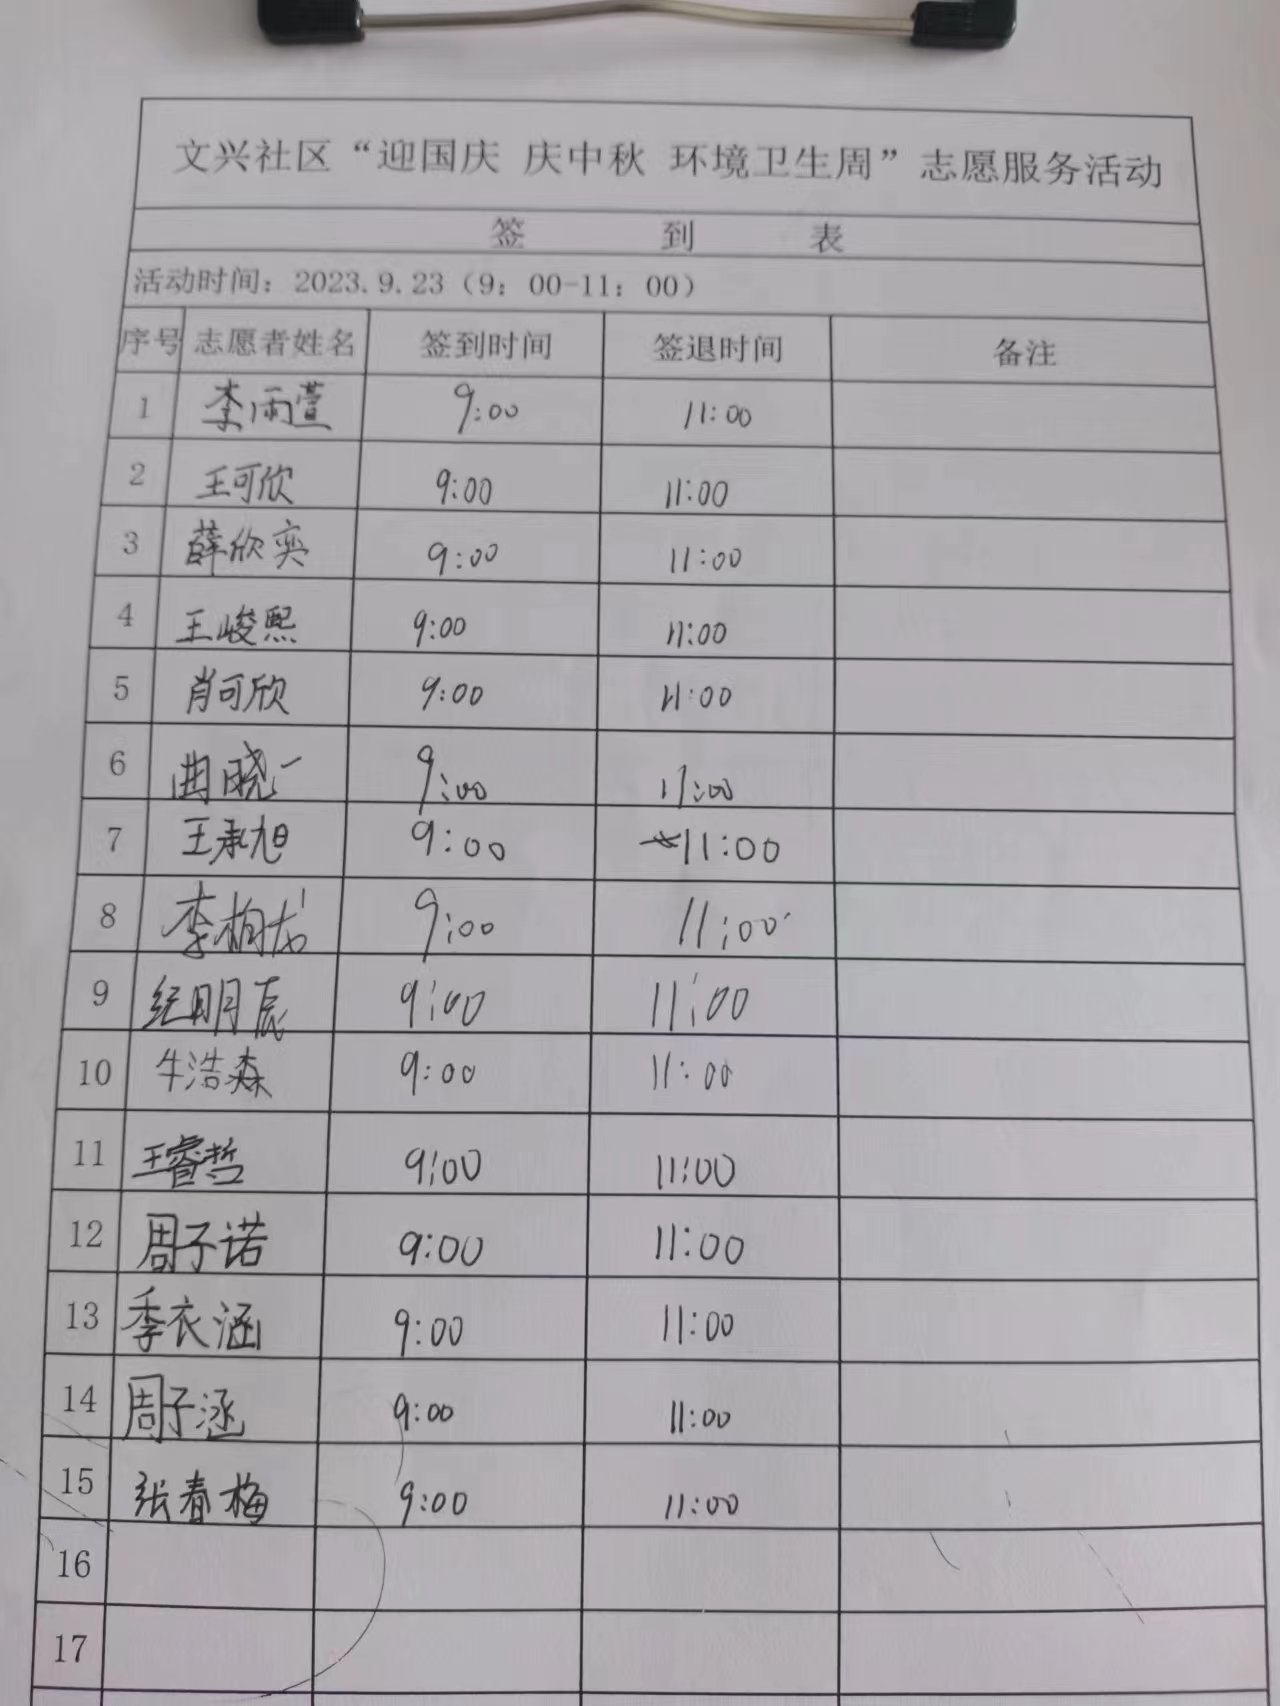 文兴社区“迎国庆 庆中秋 环境卫生周”志愿服务活动
签 到 表
活动时间：2023.9.23（9：00-11：00）
序号 志愿者姓名 签到时间 签退时间 备注
1 李雨萱 9:00 11:00
2 王可欣 9:00 11:00
3 薛欣奕 9:00 11:00
4 王峻熙 9:00 11:00
5 肖可欣 9:00 11:00
6 曲晓一 9:00 11:00
7 王承旭 9:00 11:00
8 李柏龙 9:00 11:00
9 纪明辰 9:00 11:00
10 牛浩森 9:00 11:00
11 王睿哲 9:00 11:00
12 周子诺 9:00 11:00
13 季衣涵 9:00 11:00
14 周子涵 9:00 11:00
15 张春梅 9:00 11:00
16
17